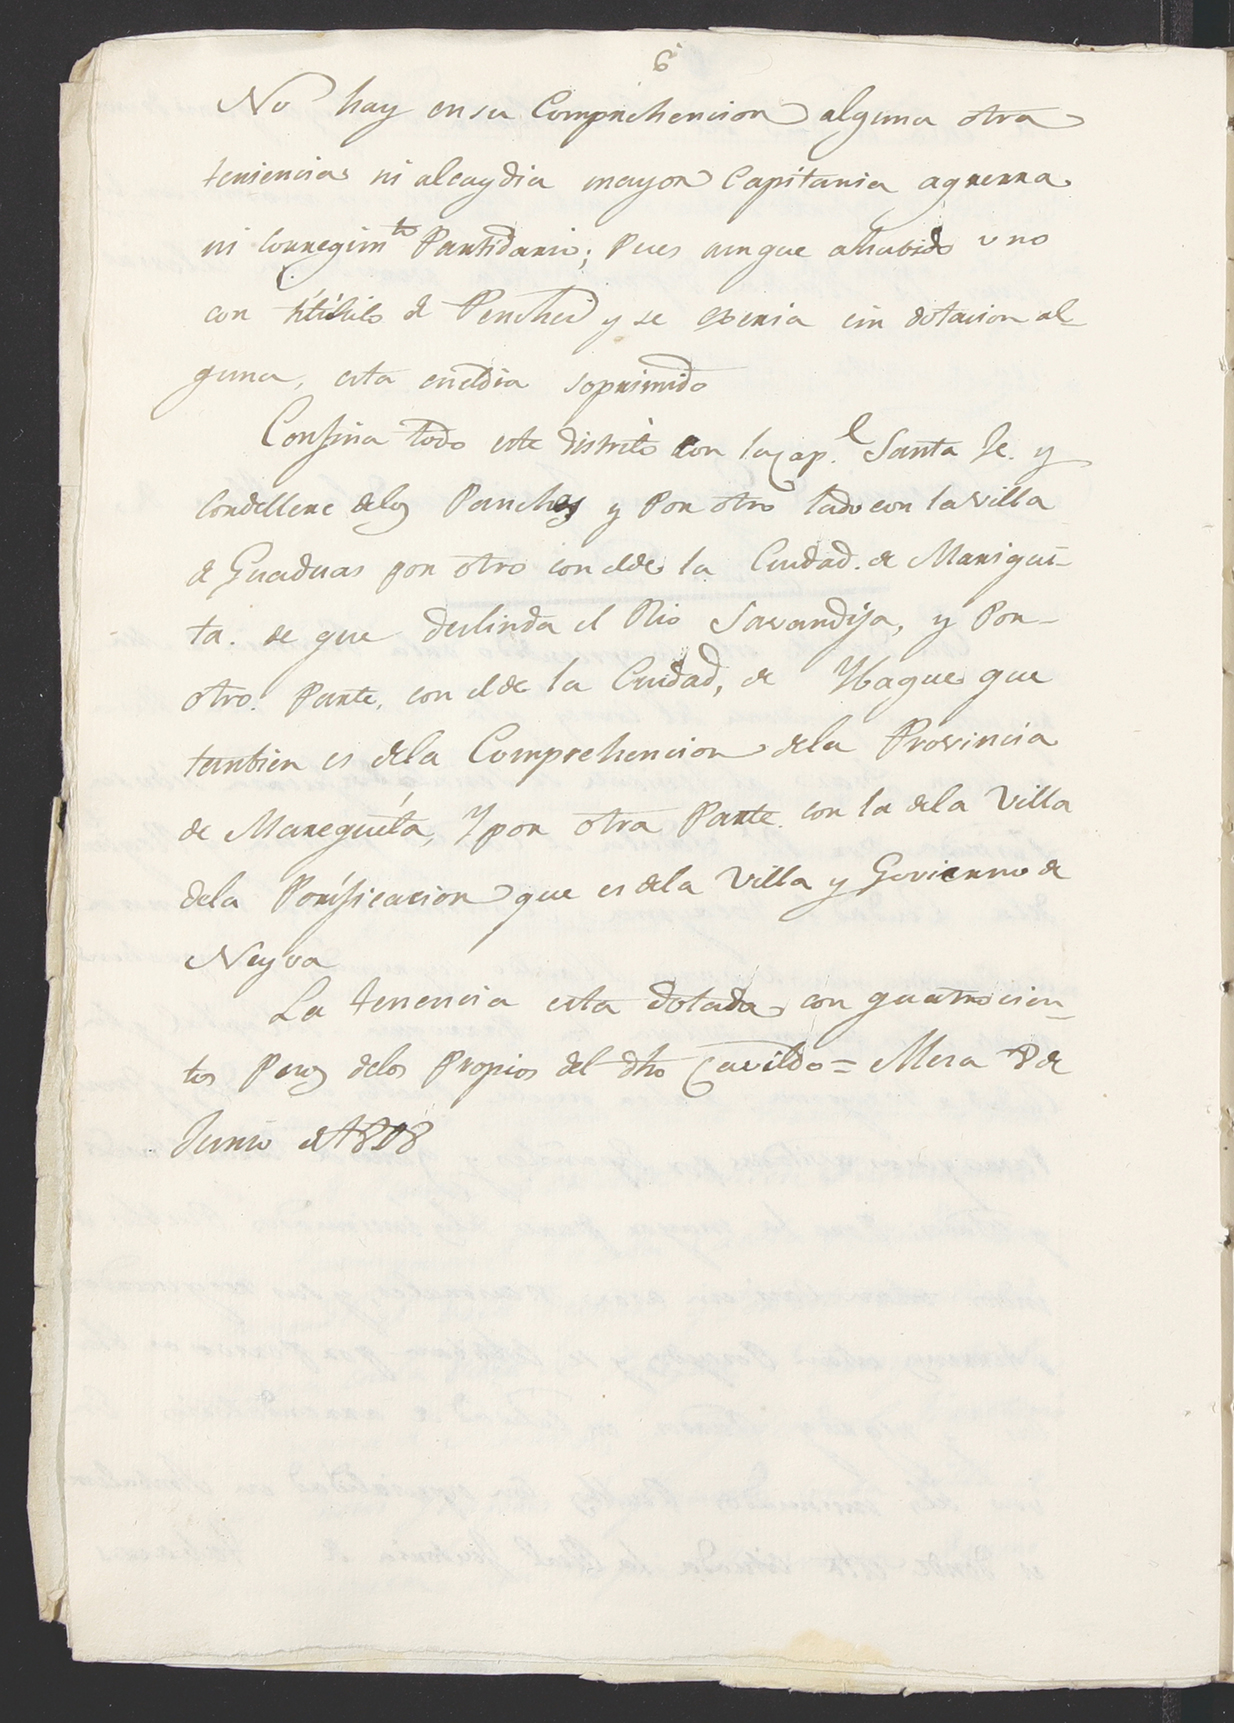 6
No hay en su Comprehencion alguna otra
teniencia ni alcaydia mayor Capitania aguerra
ni Corregim.to Partidario; Pues aunque ahabido uno
con titulo de Penchez y se servia sin dotacion al-
guna, esta eneldia soprimido
Confina todo este distrito con la Cap.l Santa Fe. y
Conellene delos Panches y Por otro lado con la villa
de Guaduas por otro con elde la Ciudad. de Mariqui-
ta. de que deslinda el Rio Savandija, y Por-
otro. Parte, con el de la Ciudad, de Ybague que
tanbien es dela Comprehencion dela Provincia
de Marequita, Y por otra Parte. con la dela Villa
dela Porificacion que es dela Villa y Govierno de
Neyva
La tenencia esta dotada con quatrocien-
tos Pesos delos Propios del dho Cavildo = Mesa 8 de
Junio de 1808